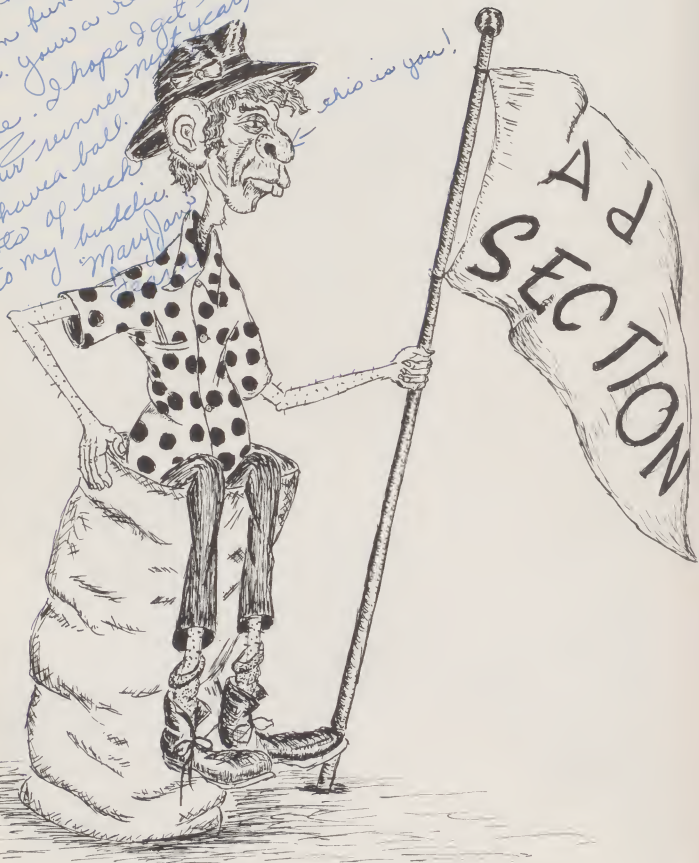 n fun
your a r
e. I hope I get
ur runner next year,
have a ball.
ts of luck
to my buddie.
Mary Jane
this is you!
Ad
SECTION